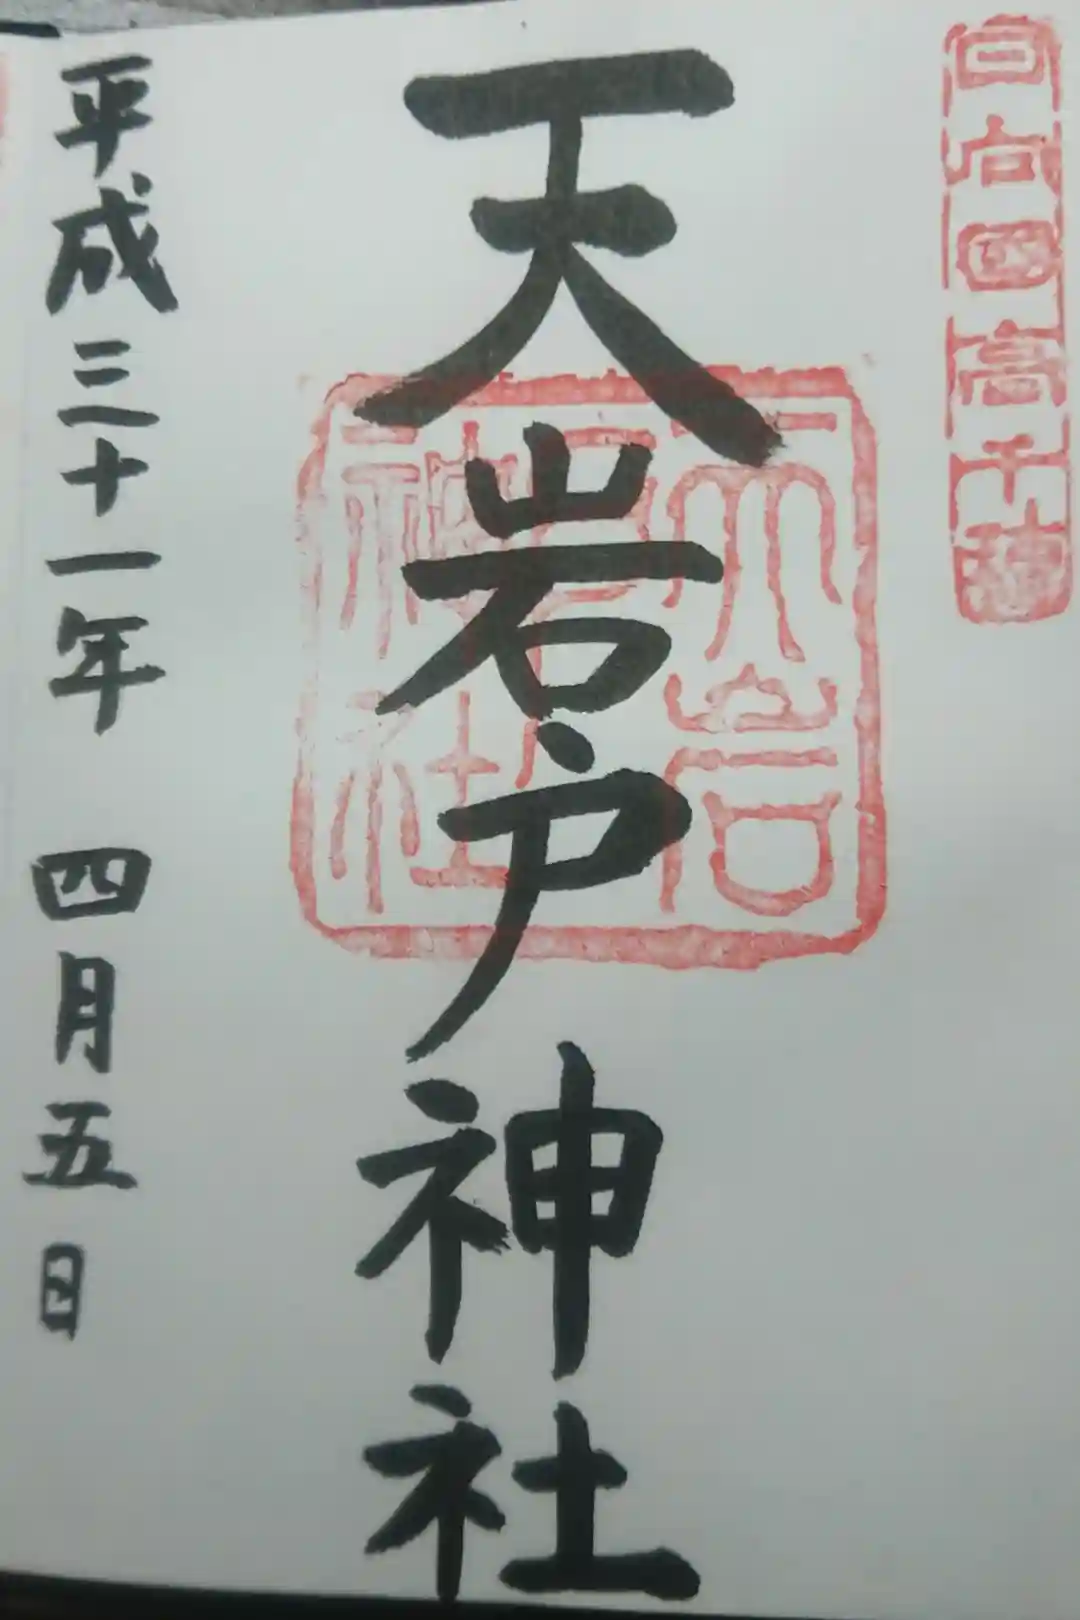 日向国高千穂
天岩戸神社
天岩戸神社
平成三十一年 四月五日